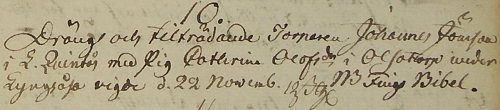 10.
Drängs och tilträdande Torparen Johannes Jönsson
i L. Quintös med Pig. Catharina Olofsdr i Olstorp under
Kyngsåsa vigde d. 22 Novemb. NB Fingo Bibel.